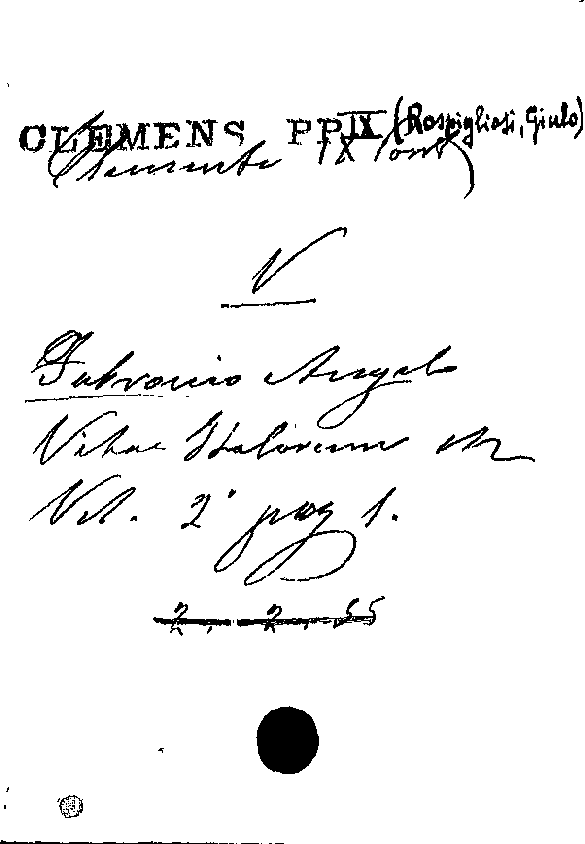 CLEMENS PP IX (Rospigliosi, Giulo)
Clemente IX Pont
V
Fabronio Angelo
Vitae Italorum
Vol. 2° pag 1.
2. 2. 55